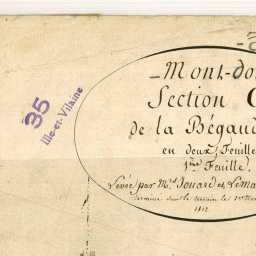 35
Ille-et-Vilaine
Mont-do
Section C
de la Bégaud
en deux Feuille
1ère Feuille.
Levée par Mrs Jouard et Lema
Terminé sur le terrain le 1er
1812